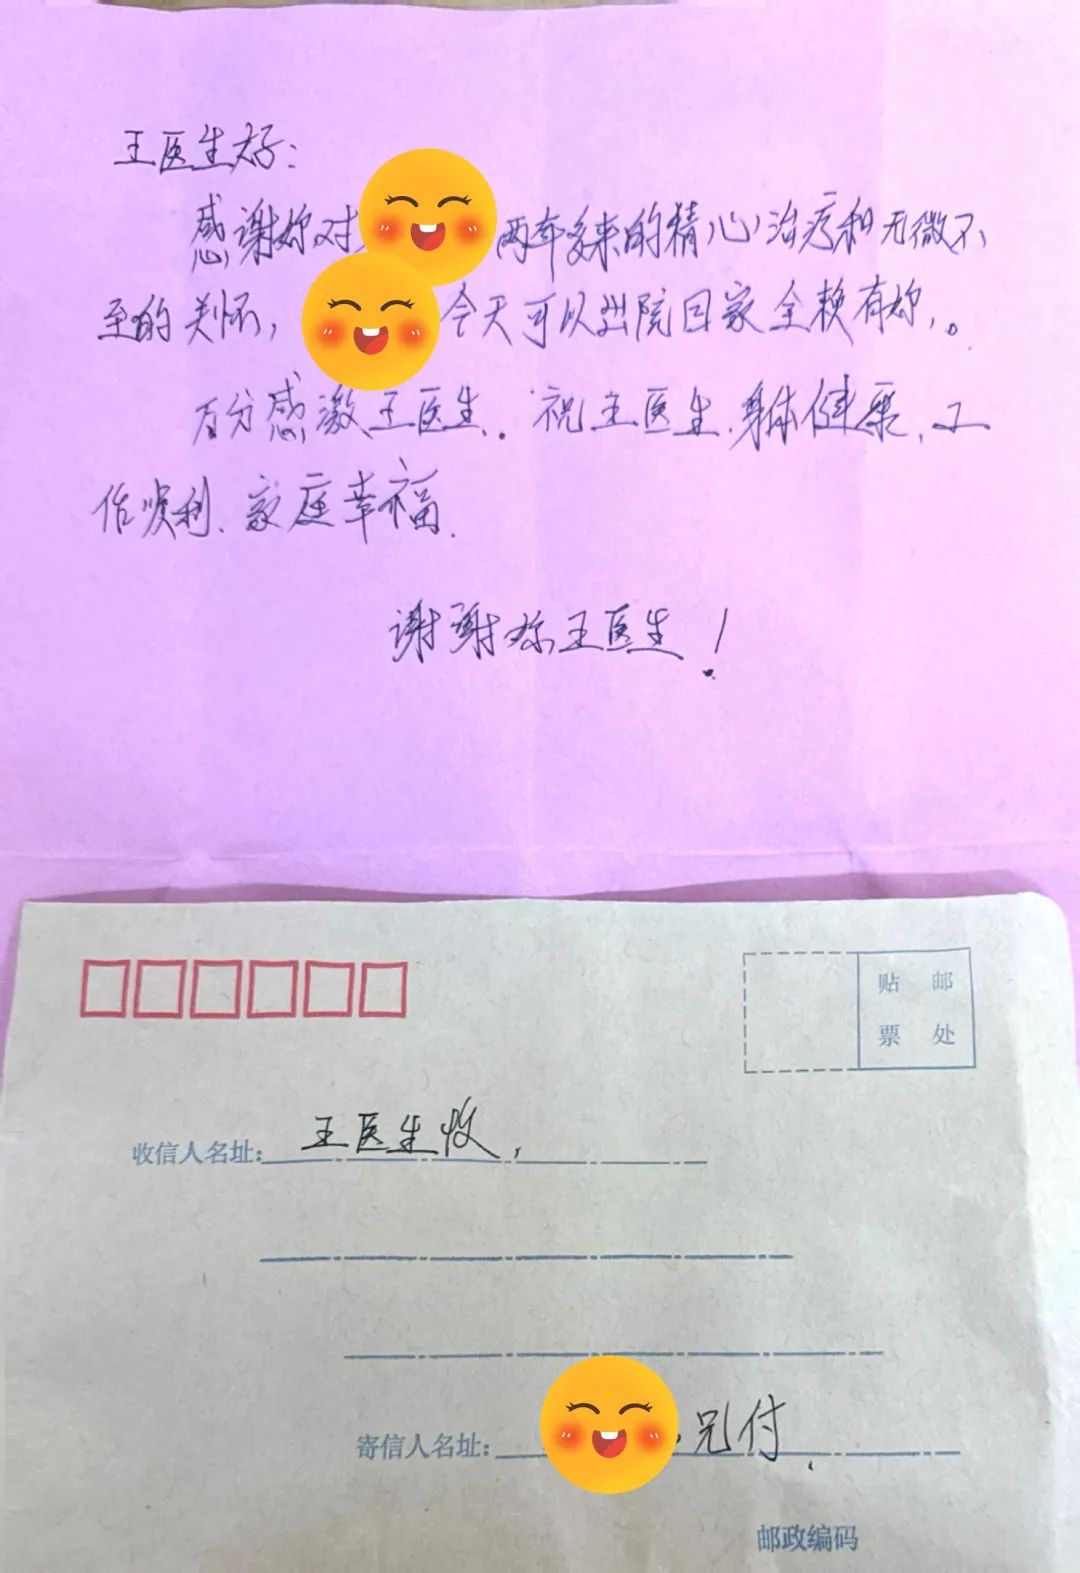 王医生好：
感谢妳对 两年多来的精心治疗和无微不
至的关怀， 今天可以出院回家全赖有妳，。
万分感激王医生．祝王医生．身体健康、工
作顺利、家庭幸福．
谢谢你王医生！
贴 邮
票 处
收信人名址：王医生收，
寄信人名址： 兄付．
邮政编码